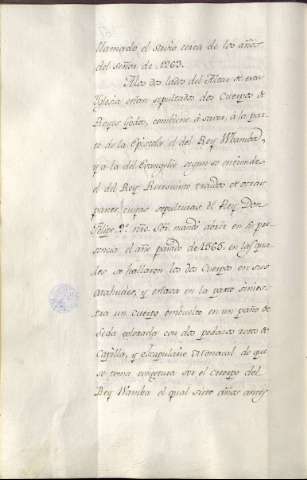 llamado el savio cerca de los años
del señor de 1263.
A los dos lados del Altar de esta
Yglesia estan sepultados dos Cuerpos de
Reyes Godos, combiene à saver, à la par
te de la Epistola el del Rey Wbamba,
y a la del Evangelio segun se entiende
el del Rey Recesvinto traidos de otras
partes, cuyas sepulturas el Rey Don
Felipe 2º. nro. Sr. mandò abrir en su pre
sencia el año pasado de 1565. en las qua
les se hallaron los dos Cuerpos en sus
Atahudes, y estava en la parte sinies
tra un Cuerpo embuelto en un paño de
Seda colorada con dos pedazos de
Capilla, y Escapulario Monacal de que
se toma congetura ser el Cuerpo del
Rey Wamba el qual siete años antes